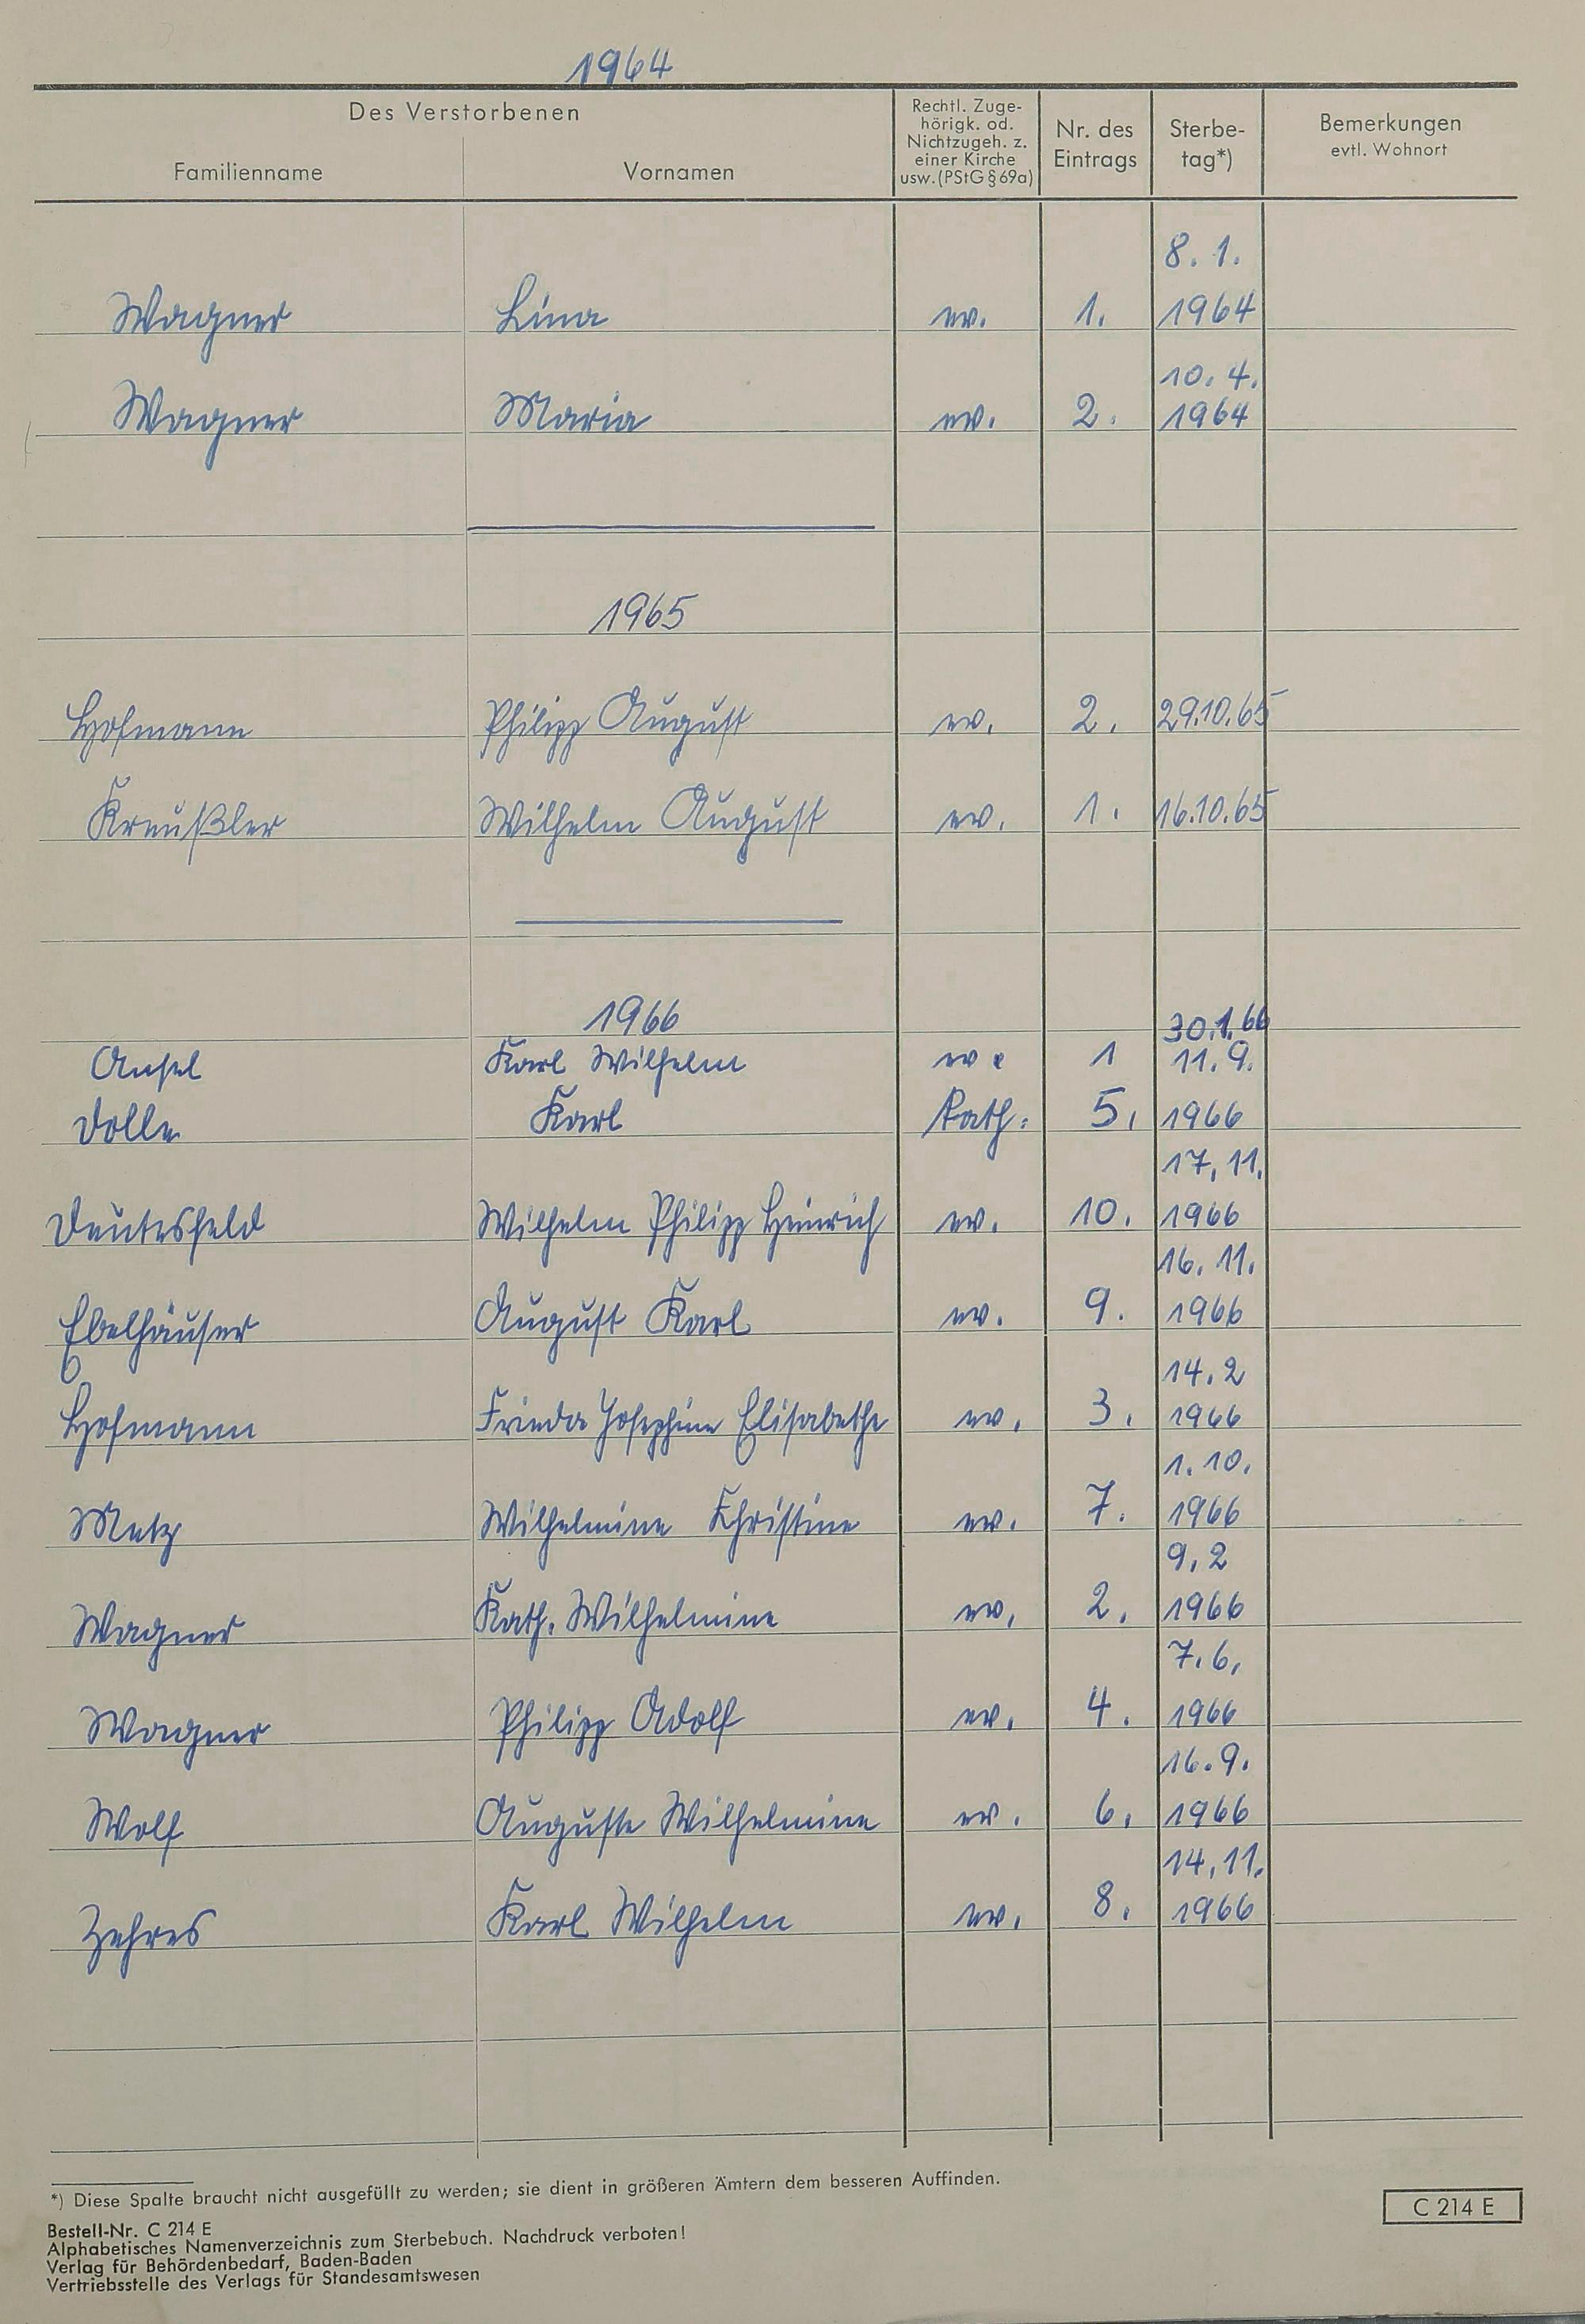 1964
Des Verstorbenen
Familienname Vornamen
Rechtl. Zuge-
hörigk. od.
Nichtzugeh. z.
einer Kirche
usw. (PStG § 69a)
Nr. des
Eintrags
Sterbe-
tag*)
Bemerkungen
evtl. Wohnort
8. 1.
Wagner Lina ev. 1. 1964
10. 4.
Wagner Maria ev. 2. 1964
1965
Hofmann Philipp August ev. 2. 29.10.65
Kreußler Wilhelm August ev. 1. 16.10.65
1966
30.1.66
Ansel Karl Wilhelm ev. 1 11. 9.
Dolle Karl Kath. 5. 1966
17. 11.
Deutesfeld Wilhelm Philipp Heinrich ev. 10. 1966
16. 11.
Ebelhäuser August Karl ev. 9. 1966
14. 2
Hofmann Frieda Josephine Elisabethe ev. 3. 1966
1. 10.
Metz Wilhelmine Christine ev. 7. 1966
9. 2
Wagner Kath. Wilhelmine ev. 2. 1966
7. 6.
Wagner Philipp Adolf ev. 4. 1966
16. 9.
Wolf Auguste Wilhelmine ev. 6. 1966
14. 11.
Zehres Karl Wilhelm ev. 8. 1966
*) Diese Spalte braucht nicht ausgefüllt zu werden; sie dient in größeren Ämtern dem besseren Auffinden.
C 214 E
Bestell-Nr. C 214 E
Alphabetisches Namenverzeichnis zum Sterbebuch. Nachdruck verboten!
Verlag für Behördenbedarf, Baden-Baden
Vertriebsstelle des Verlags für Standesamtswesen